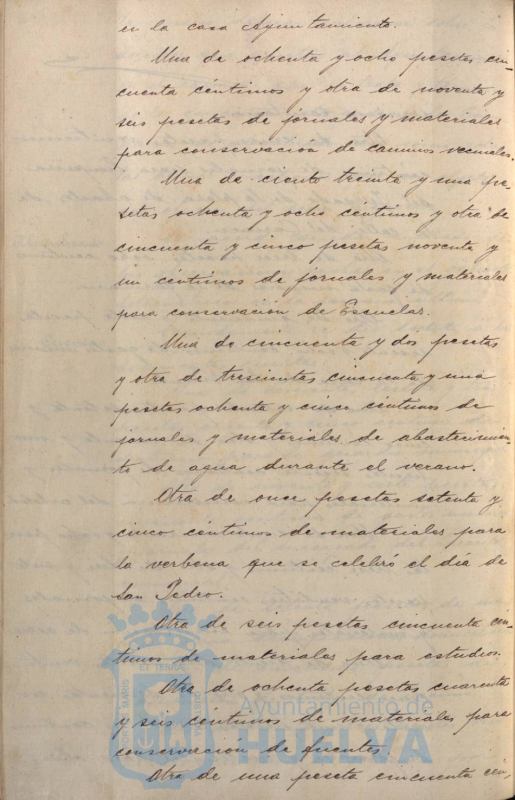 en la casa Ayuntamiento.
Una de ochenta y ocho pesetas cin-
cuenta céntimos y otra de noventa y
seis pesetas de jornales y materiales
para conservación de caminos vecinales.
Una de ciento treinta y una pe-
setas ochenta y ocho céntimos y otra de
cincuenta y cinco pesetas noventa y
un céntimos de jornales y materiales
para conservación de Escuelas.
Una de cincuenta y dos pesetas
y otra de trescientas cincuenta y una
pesetas ochenta y cinco céntimos de
jornales y materiales de abastecimien-
to de agua durante el verano.
Otra de once pesetas setenta y
cinco céntimos de materiales para
la verbena que se celebró el día de
San Pedro.
Otra de seis pesetas cincuenta cén-
timos de materiales para estudios.
Otra de ochenta pesetas cuarenta
y seis céntimos de materiales para
conservacion de fuentes.
Otra de una peseta cincuenta cén-
Ayuntamiento de
HUELVA